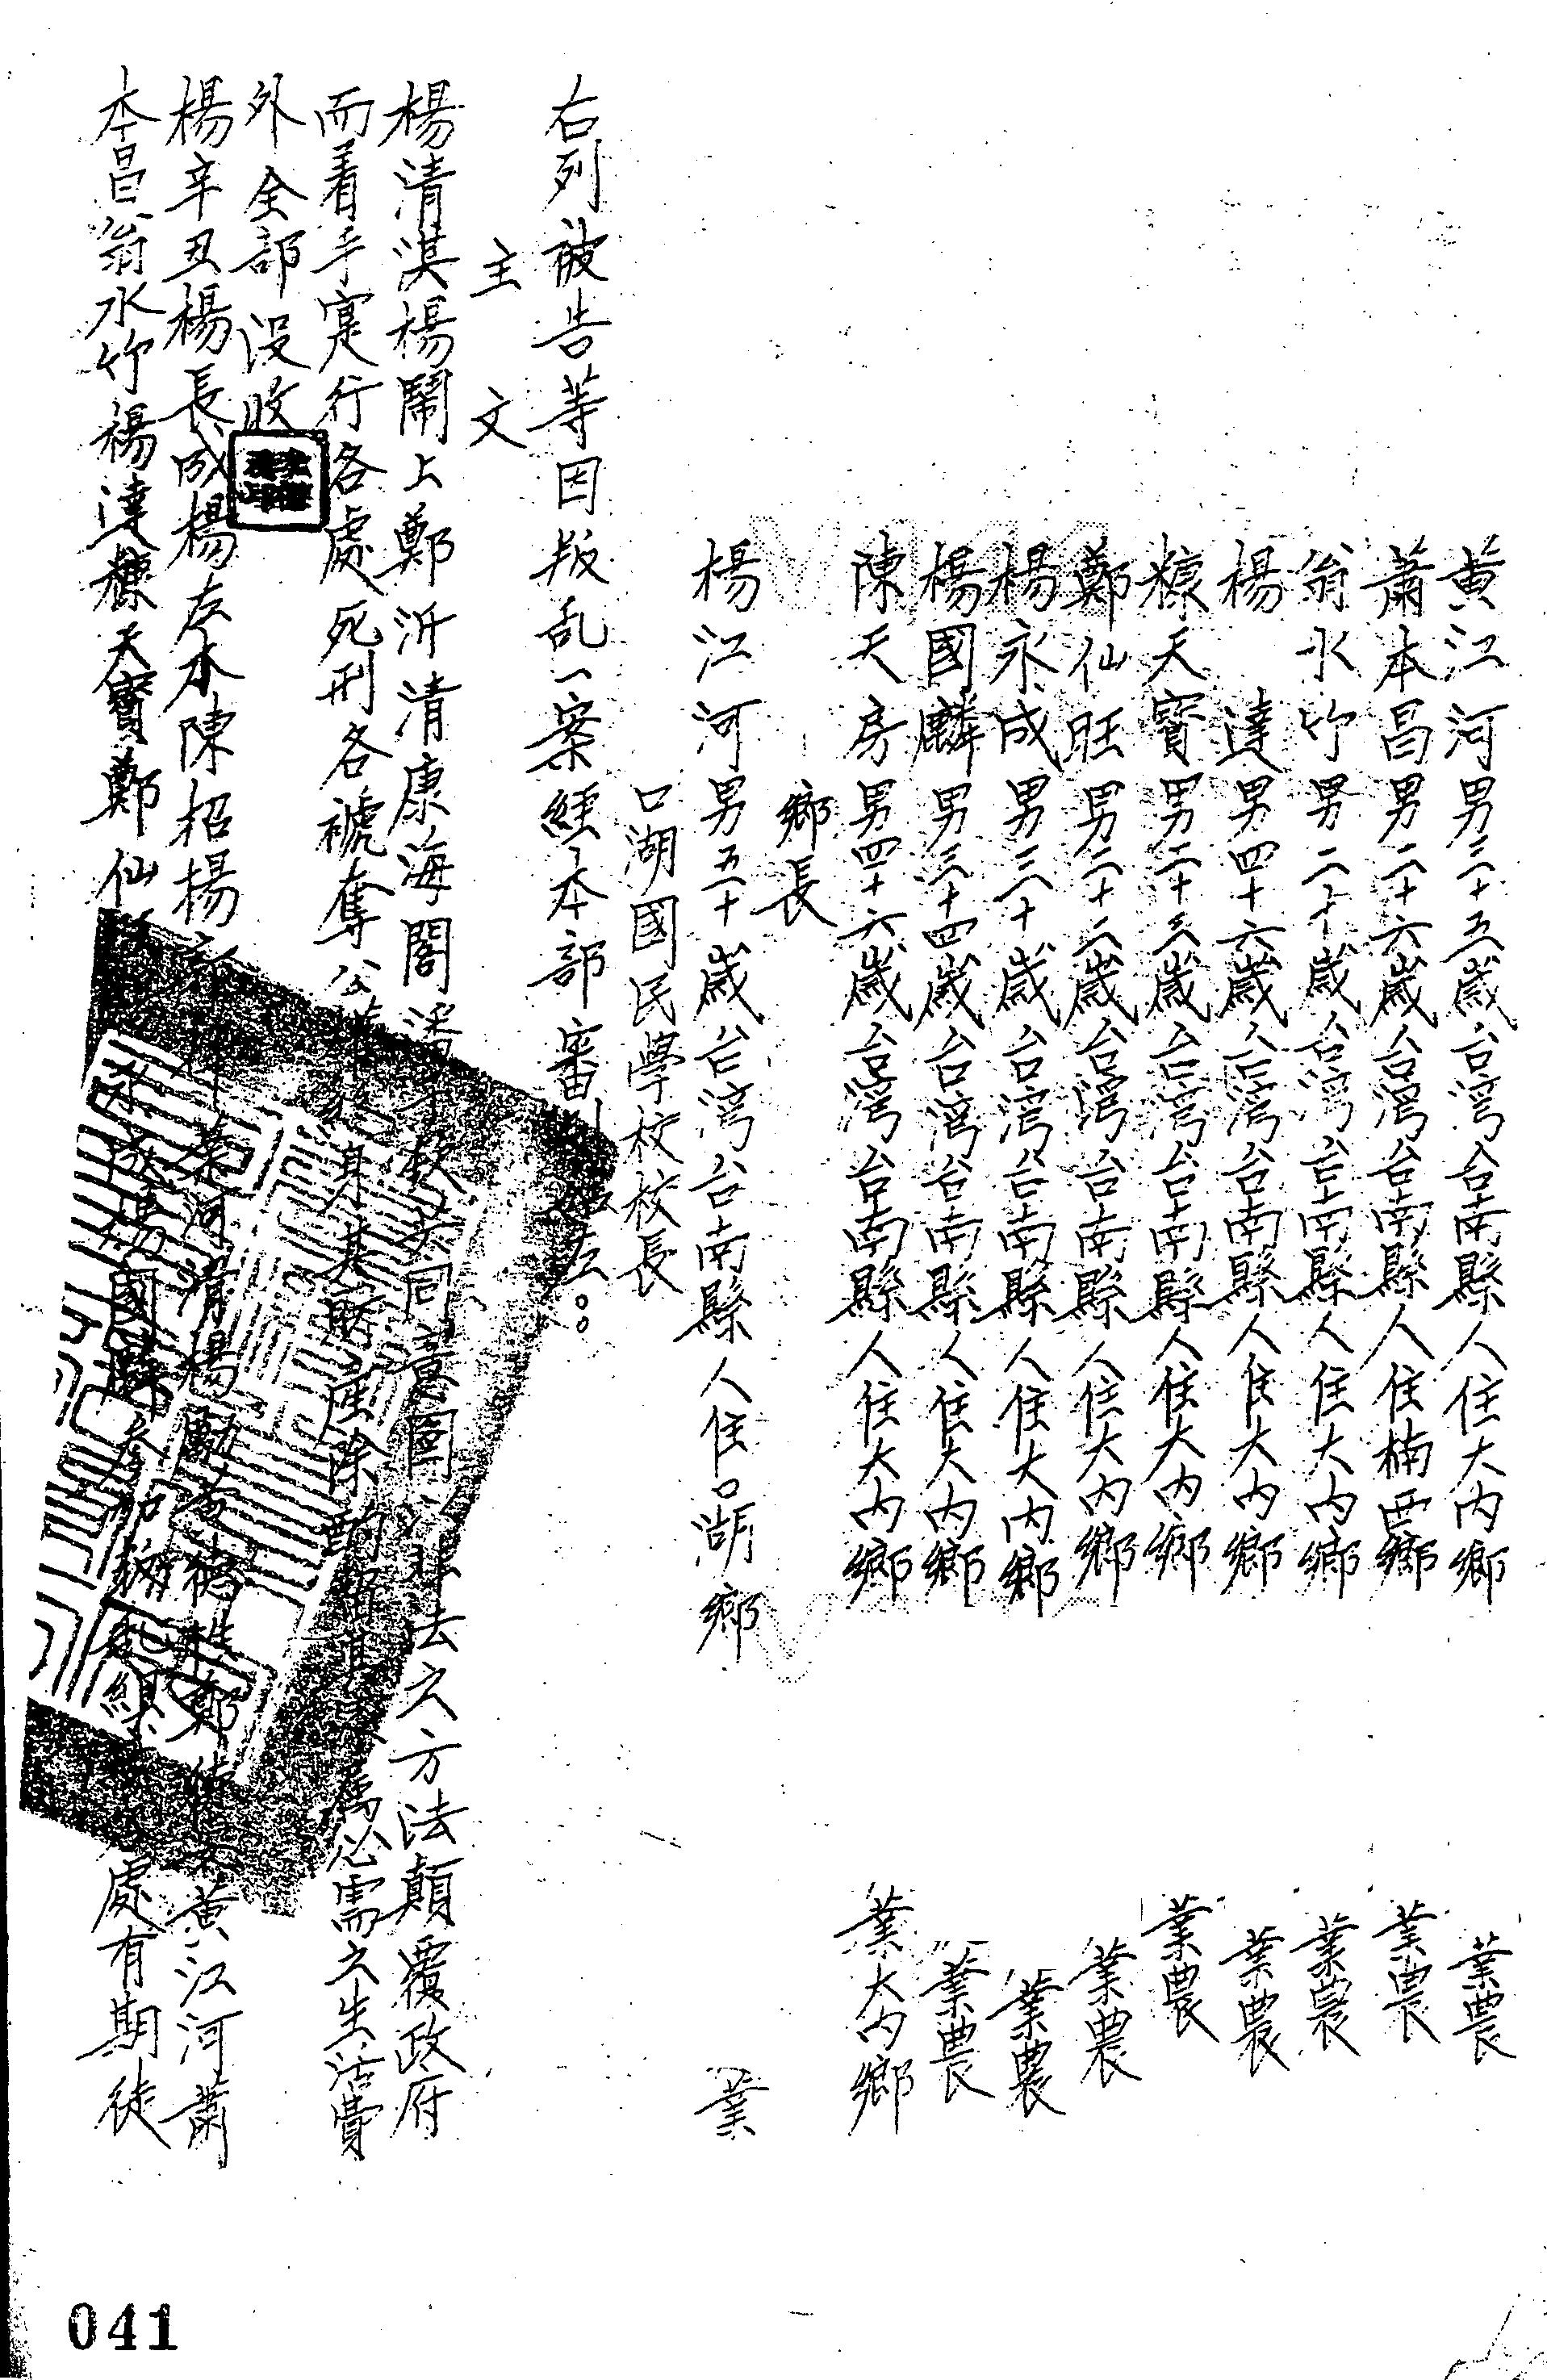 黃江河男三十五歲台湾台南縣人住大内鄉 業農
蕭本昌男二十六歲台湾台南縣人住楠西鄉 業農
翁水竹男二十歲台湾台南縣人住大内鄉 業農
楊 達男四十六歲台湾台南縣人住大内鄉 業農
糠天寶男二十三歲台湾台南縣人住大内鄉 業農
鄭仙旺男二十二歲台湾台南縣人住大内鄉 業農
楊永成男三十歲台湾台南縣人住大内鄉 業農
楊國麟男三十四歲台湾台南縣人住大内鄉 業農
陳天房男四十六歲台湾台南縣人住大内鄉 業大内鄉
鄉長
楊江河男五十歲台湾台南縣人住口湖鄉 業
口湖國民學校校長
右列被告等因叛乱一案経本部審判如左:
主 文
楊清淇楊鬧上鄭沂清康海閣潘 欽共同意圖以非法之方法顛覆政府
而着手寔行各處死刑各褫奪公 身其財產除酌留其 為必需之生活費
外全部没收
楊辛丑楊長成楊左水陳招楊 葉河清楊勳黃 鄭 黃江河蕭
本昌翁水竹楊達糠天寶鄭仙 永成楊國麟參加叛乱組 處有期徒
041